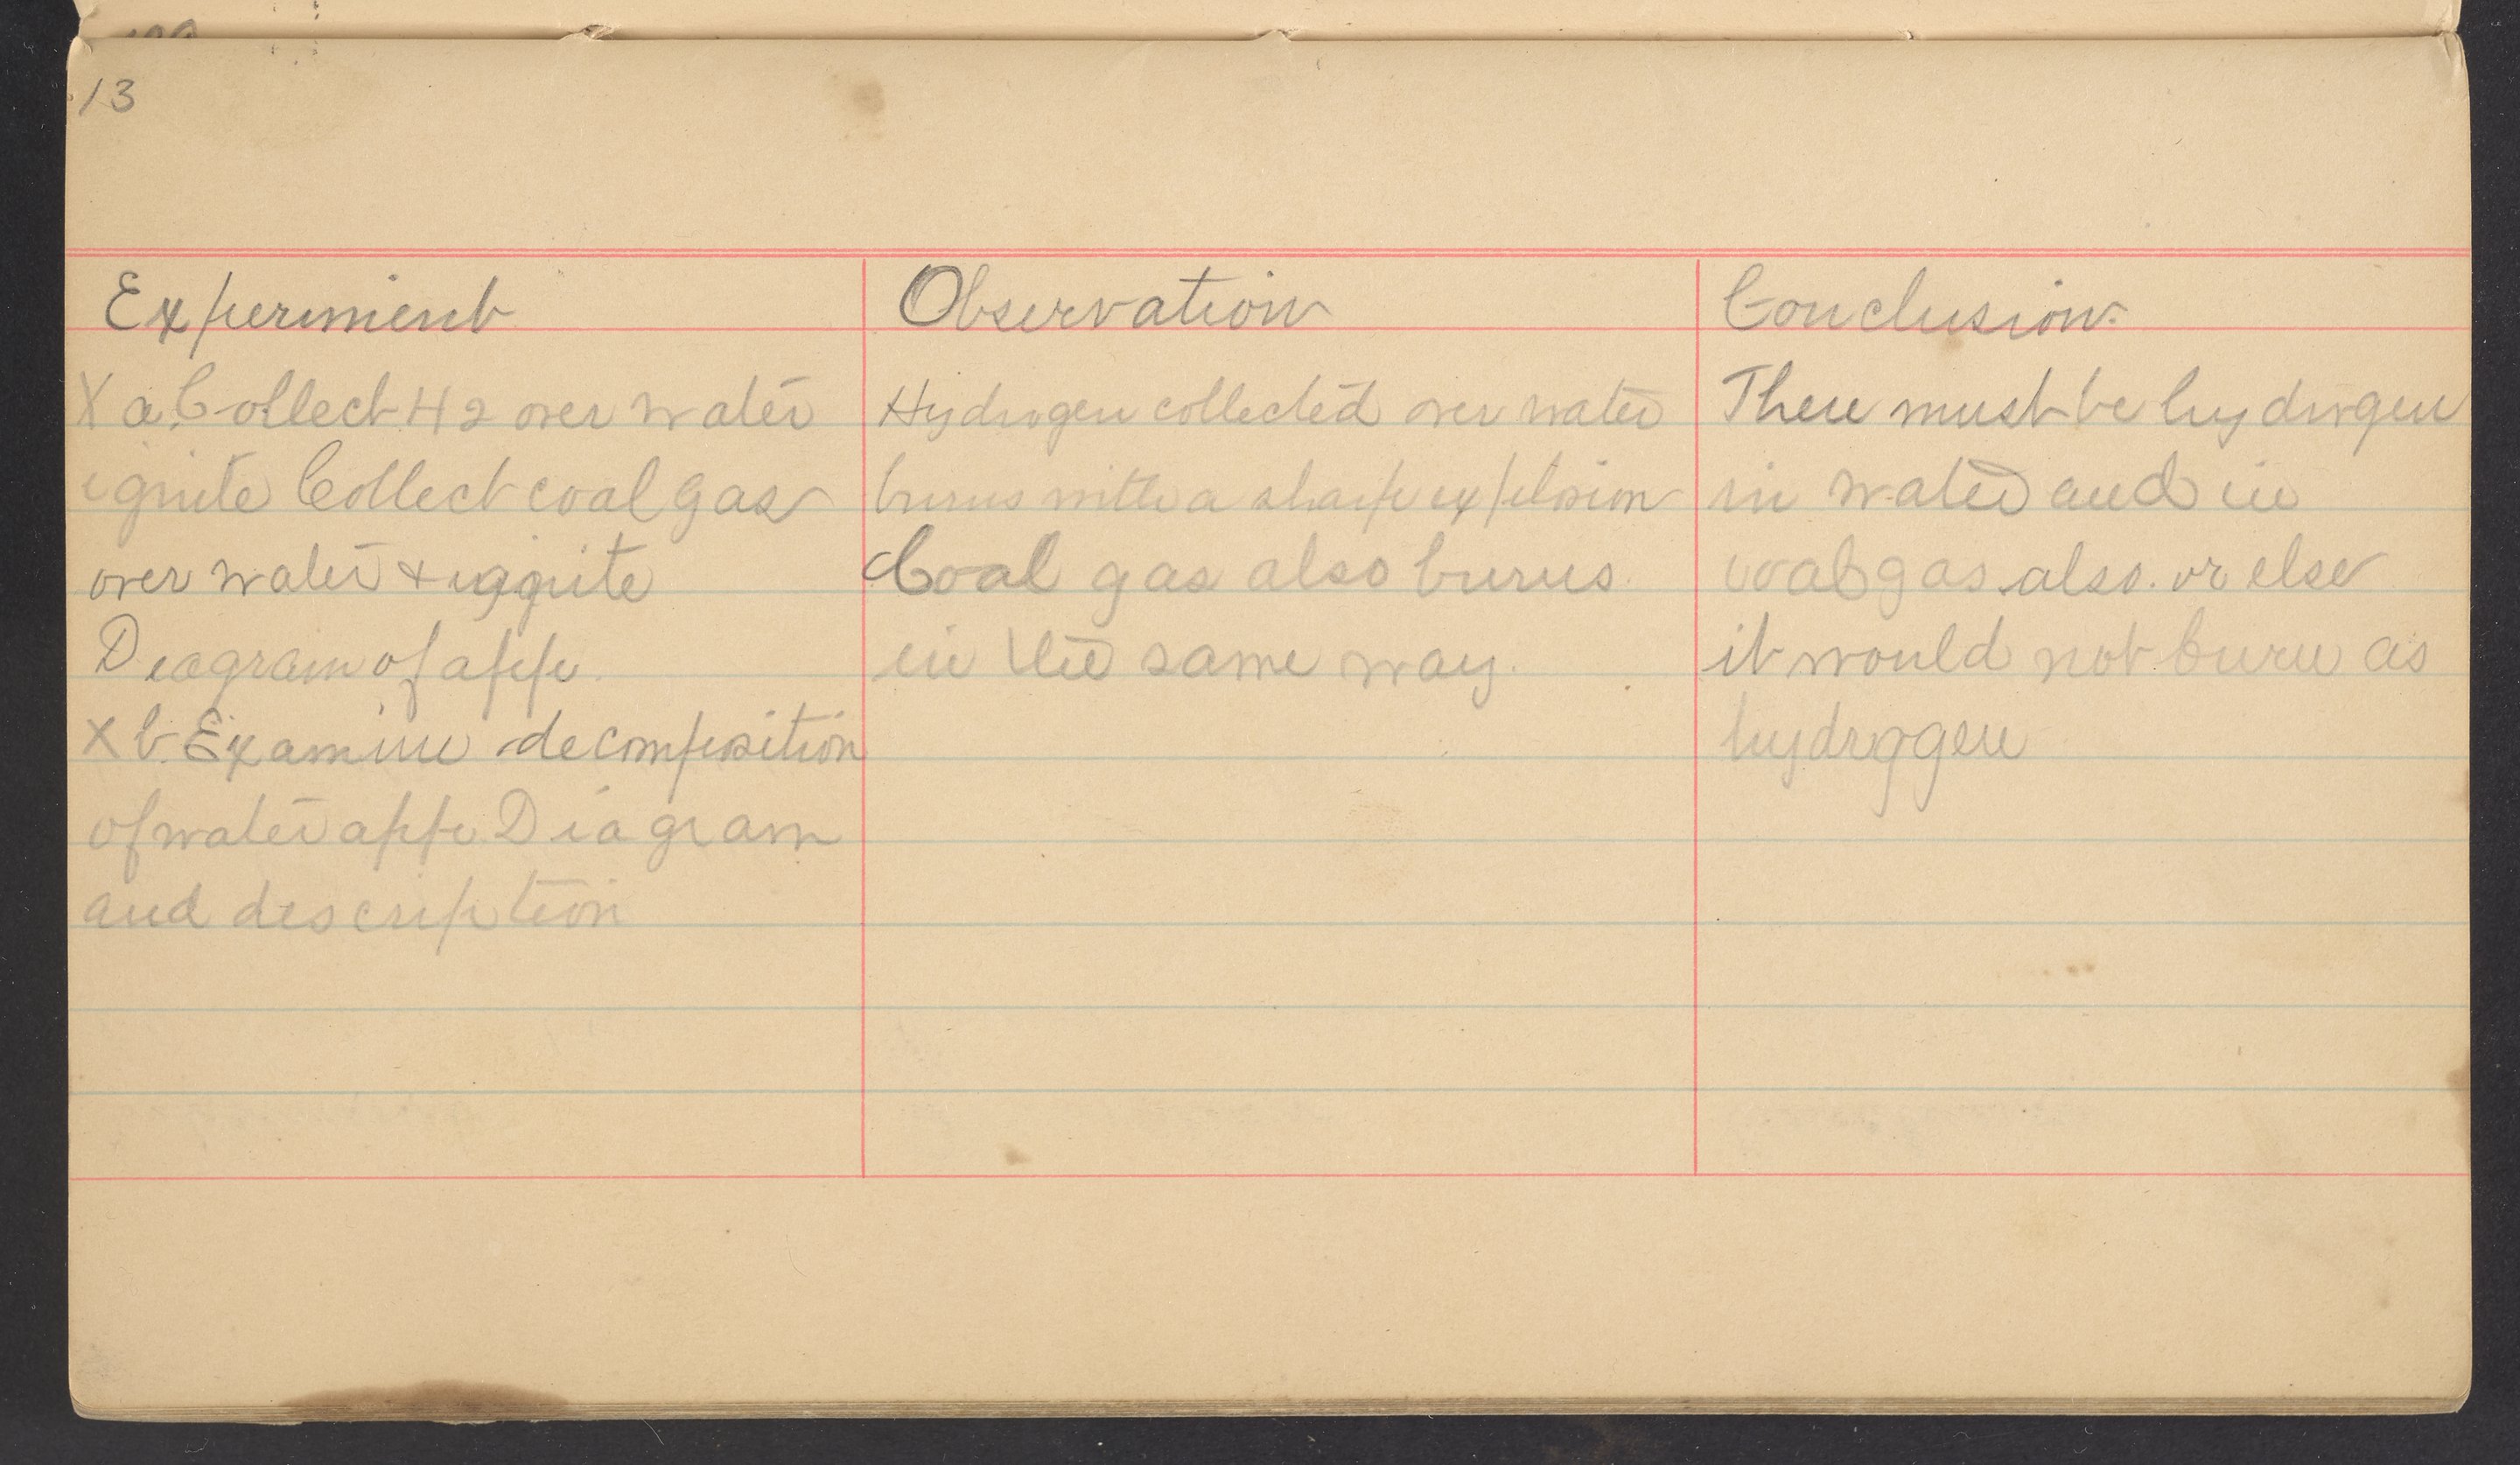 13
Experiment
X a. Collect H2 over water
ignite Collect coal gas
over water & iggnite
Diagram of app.
X b. Examine decomposition
of water app. Diagram
and description
Observation
Hydrogen collected over water
burns with a sharp explosion
Coal gas also burns.
in the same way.
Conclusion.
There must be hydrogen
in water and in
coal gas also. or else
it would not burn as
hydroggen